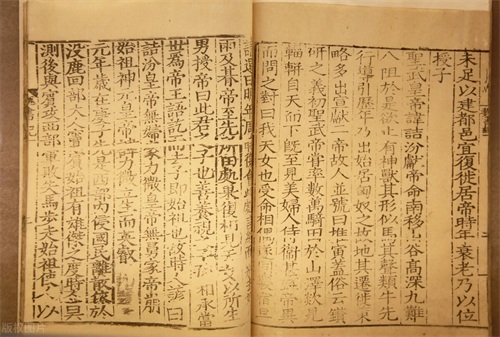 未足以建都邑宜復徙居帝時年衰老乃以位
授子
聖武皇帝諱詰汾獻帝命南移山谷高深九難
八阻於是欲止有神獸其形似馬其聲類牛先
行導引歷年乃出始居匈奴之故地其遷徙策
略多出宣獻二帝故人並號曰推寅蓋俗云鑽
研之義初聖武帝嘗率數萬騎田於山澤欻見
輜軿自天而下既至見美婦人侍衛甚盛帝異
而問之對曰我天女也受命相偶
請還曰明年周時復會此處
雨及期帝至先所田處果復相見天女以所生
男授帝曰此君之子也善養視之子孫相承當
世為帝王語訖而去子即始祖也故時人諺曰
詰汾皇帝無婦家力微皇帝無舅家帝崩
始祖神元皇帝諱力微立生而英叡
元年歲在庚子先是西部內侵國民離散依於
沒鹿回部大人竇賓始祖有雄傑之度時人莫
測後與賓攻西部軍敗失馬步走始祖使人以